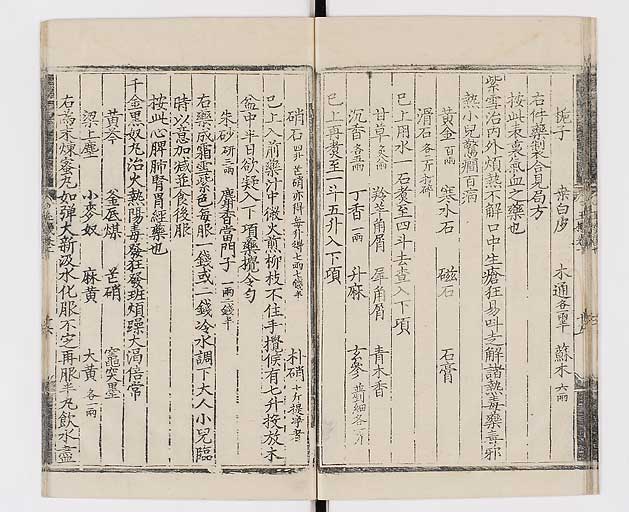 梔子 桑白皮 木通各一兩半 蘇木六兩
右件藥製合見局方
按此表裏氣血之藥也
紫雪治內外煩熱不解口中生瘡狂易叫走解諸熱毒藥毒邪
熱小兒驚癎百病
黃金百兩 寒水石 磁石 石膏
滑石各三斤
已上用水一石煮至四斗去查入下項
甘草 羚羊角屑 犀角屑 青木香
沉香各五兩 丁香一兩 升麻 玄參
已上再煮至一斗五升入下項
硝石四斤芒硝亦得每升得七兩七錢半 朴硝十斤提淨者
已上入前藥汁中微火煎柳枝不住手攪候有七升投放木
盆中半日欲凝入下項藥攪令勻
朱砂研三兩 麝香當門子一兩二錢半
右藥成霜雪紫色每服一錢或二錢冷水調下大人小兒臨
時以意加減並食後服
按此心脾肺腎胃經藥也
千金黑奴丸治火熱陽毒發狂發班煩躁大渴倍常
黃芩 釜底煤 芒硝 竈突墨
梁上塵 小麥奴 麻黃 大黃各一兩
右為末煉蜜丸如彈大新汲水化服不定再服半丸飲水盡